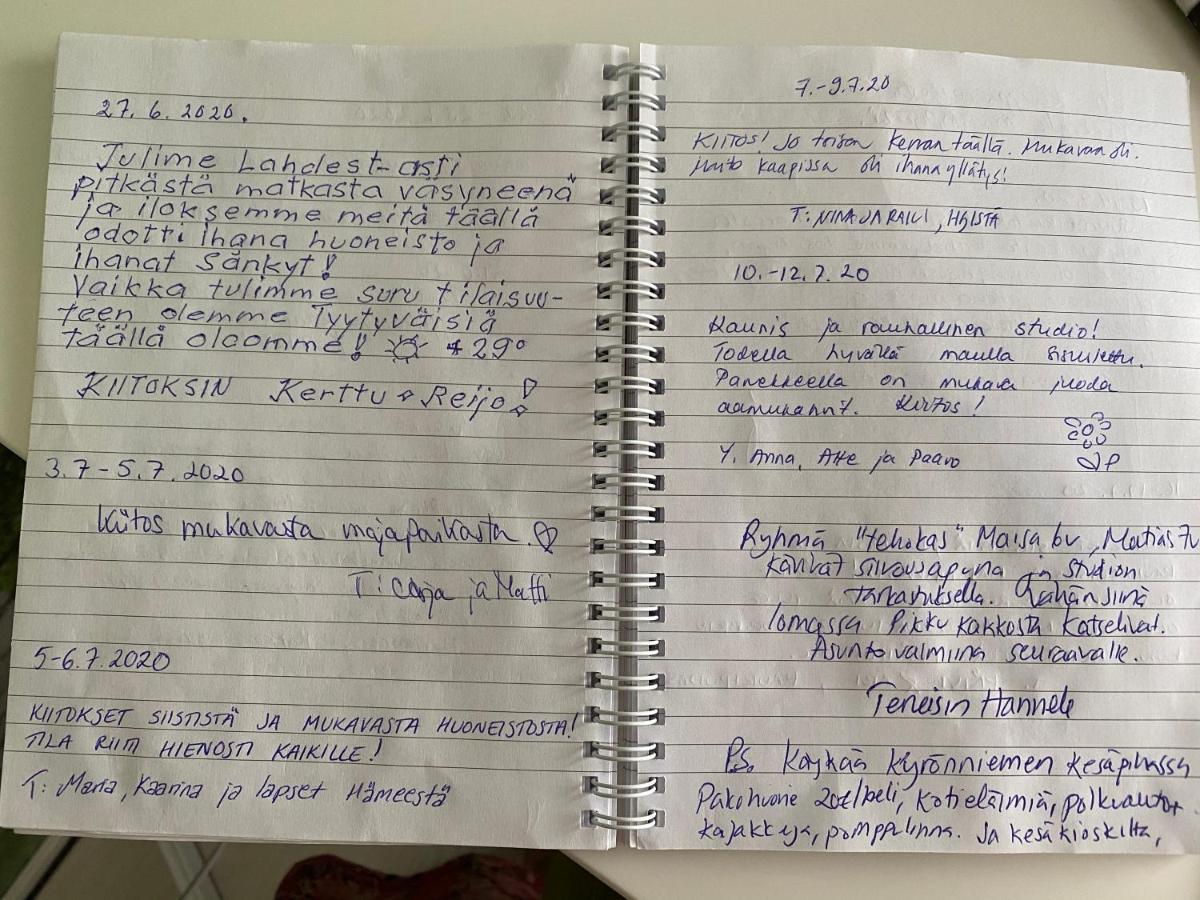 27.6.2020.
Tulimme Lahdest-asti
pitkästä matkasta väsyneenä
ja iloksemme meitä täällä
odotti ihana huoneisto ja
ihanat Sänkyt!
Vaikka tulimme suru tilaisuu-
teen olemme Tyytyväisiä
täällä oloomme! +29°
KIITOKSIN Kerttu & Reijo!
3.7-5.7.2020
Kiitos mukavasta majapaikasta.
T: Carja ja Matti
5-6.7.2020
KIITOKSET SIISTISTÄ JA MUKAVASTA HUONEISTOSTA!
TILA RIITTI HIENOSTI KAIKILLE!
T: Maria, Kaarina ja lapset Hämeestä
7.-9.7.20
KIITOS! Jo toisen kerran täällä. Mukavan oli.
kaapissa oli ihana yllätys!
T: NINA JA RAILI, HGISTÄ
10.-12.7.20
Kaunis ja rauhallinen studio!
Todella hyvällä maulla sisustettu.
Parvekkeella on mukava juoda
aamukahvit. Kiitos!
Y. Anna, Atte ja Paavo
Ryhmä "tehokas" Maisa 6v, Matias 7v
kävivät siivousapuna ja studion
tarkastuksella. Vähän siinä
lomassa Pikku kakkosta katselivat.
Asunto valmiina seuraavalle.
Terveisin Hannele
Ps. Käykää Kyrönniemen kesäpihassa
Pakohuone 20€/peli, kotieläimiä, polkuautot
kajakkeja, pomppulinna. Ja kesäkioskilta,